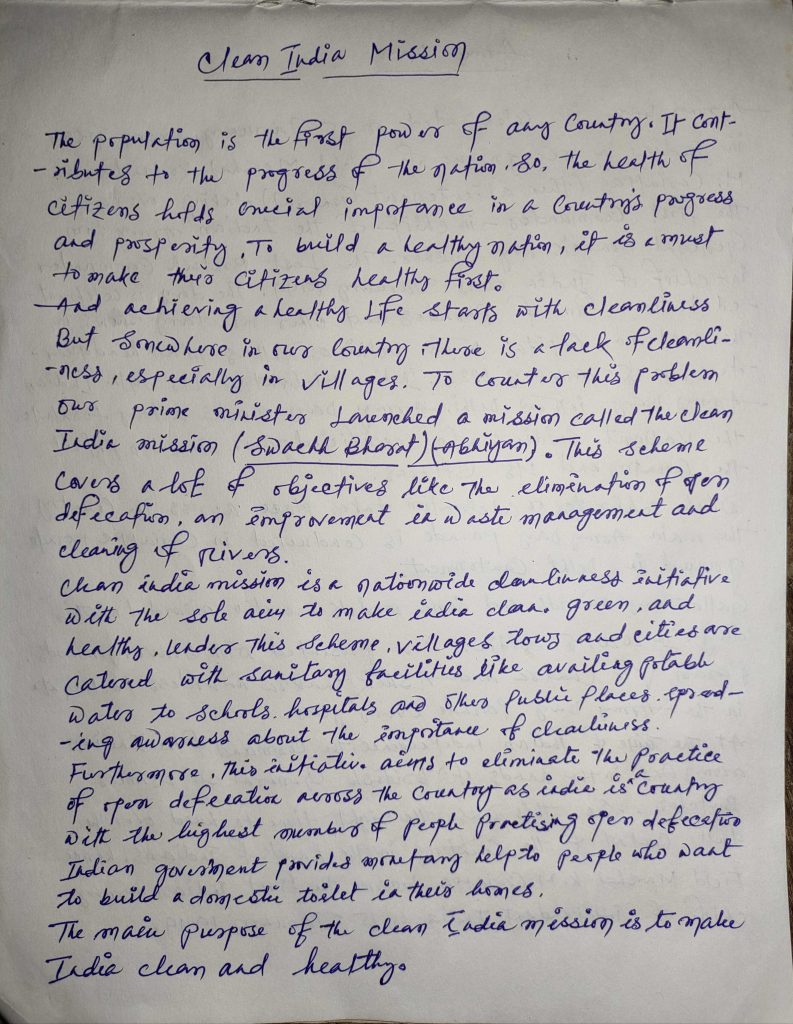 Clean India Mission
The population is the first power of any Country. It cont-
-ributes to the progress of the nation. So, the health of
citizens holds crucial importance in a Country's progress
and prosperity. To build a healthy nation, it is a must
to make their citizens healthy first.
And achieving a healthy life starts with cleanliness
But Somewhere in our Country, there is a lack of cleanli-
-ness, especially in villages. To counter this problem
our prime minister launched a mission called the clean
India mission (Swachh Bharat) (Abhiyan). This scheme
Covers a lot of objectives like the elimination of open
defecation, an improvement in waste management and
cleaning of rivers.
Clean india mission is a nationwide cleanliness initiative
with the sole aim to make india clean, green, and
healthy, under this scheme, villages towns and cities are
catered with sanitary facilities like availing potable
water to schools, hospitals and other public places, spread-
-ing awarness about the importance of cleanliness.
Furthermore, this initiative aims to eliminate the practice
of open defecation across the country as india is a Country
with the highest number of people practising open defecation
Indian goverment provides monetary help to people who want
to build a domestic toilet in their homes.
The main purpose of the clean India mission is to make
India clean and healthy.